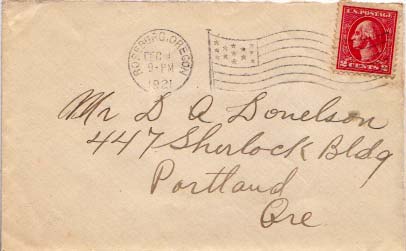 ROSEBURG, OREGON
DEC
9-PM
1921
U.S. POSTAGE
2 CENTS 2
Mr D A Donelson
447 Sherlock Bldg
Portland
Ore